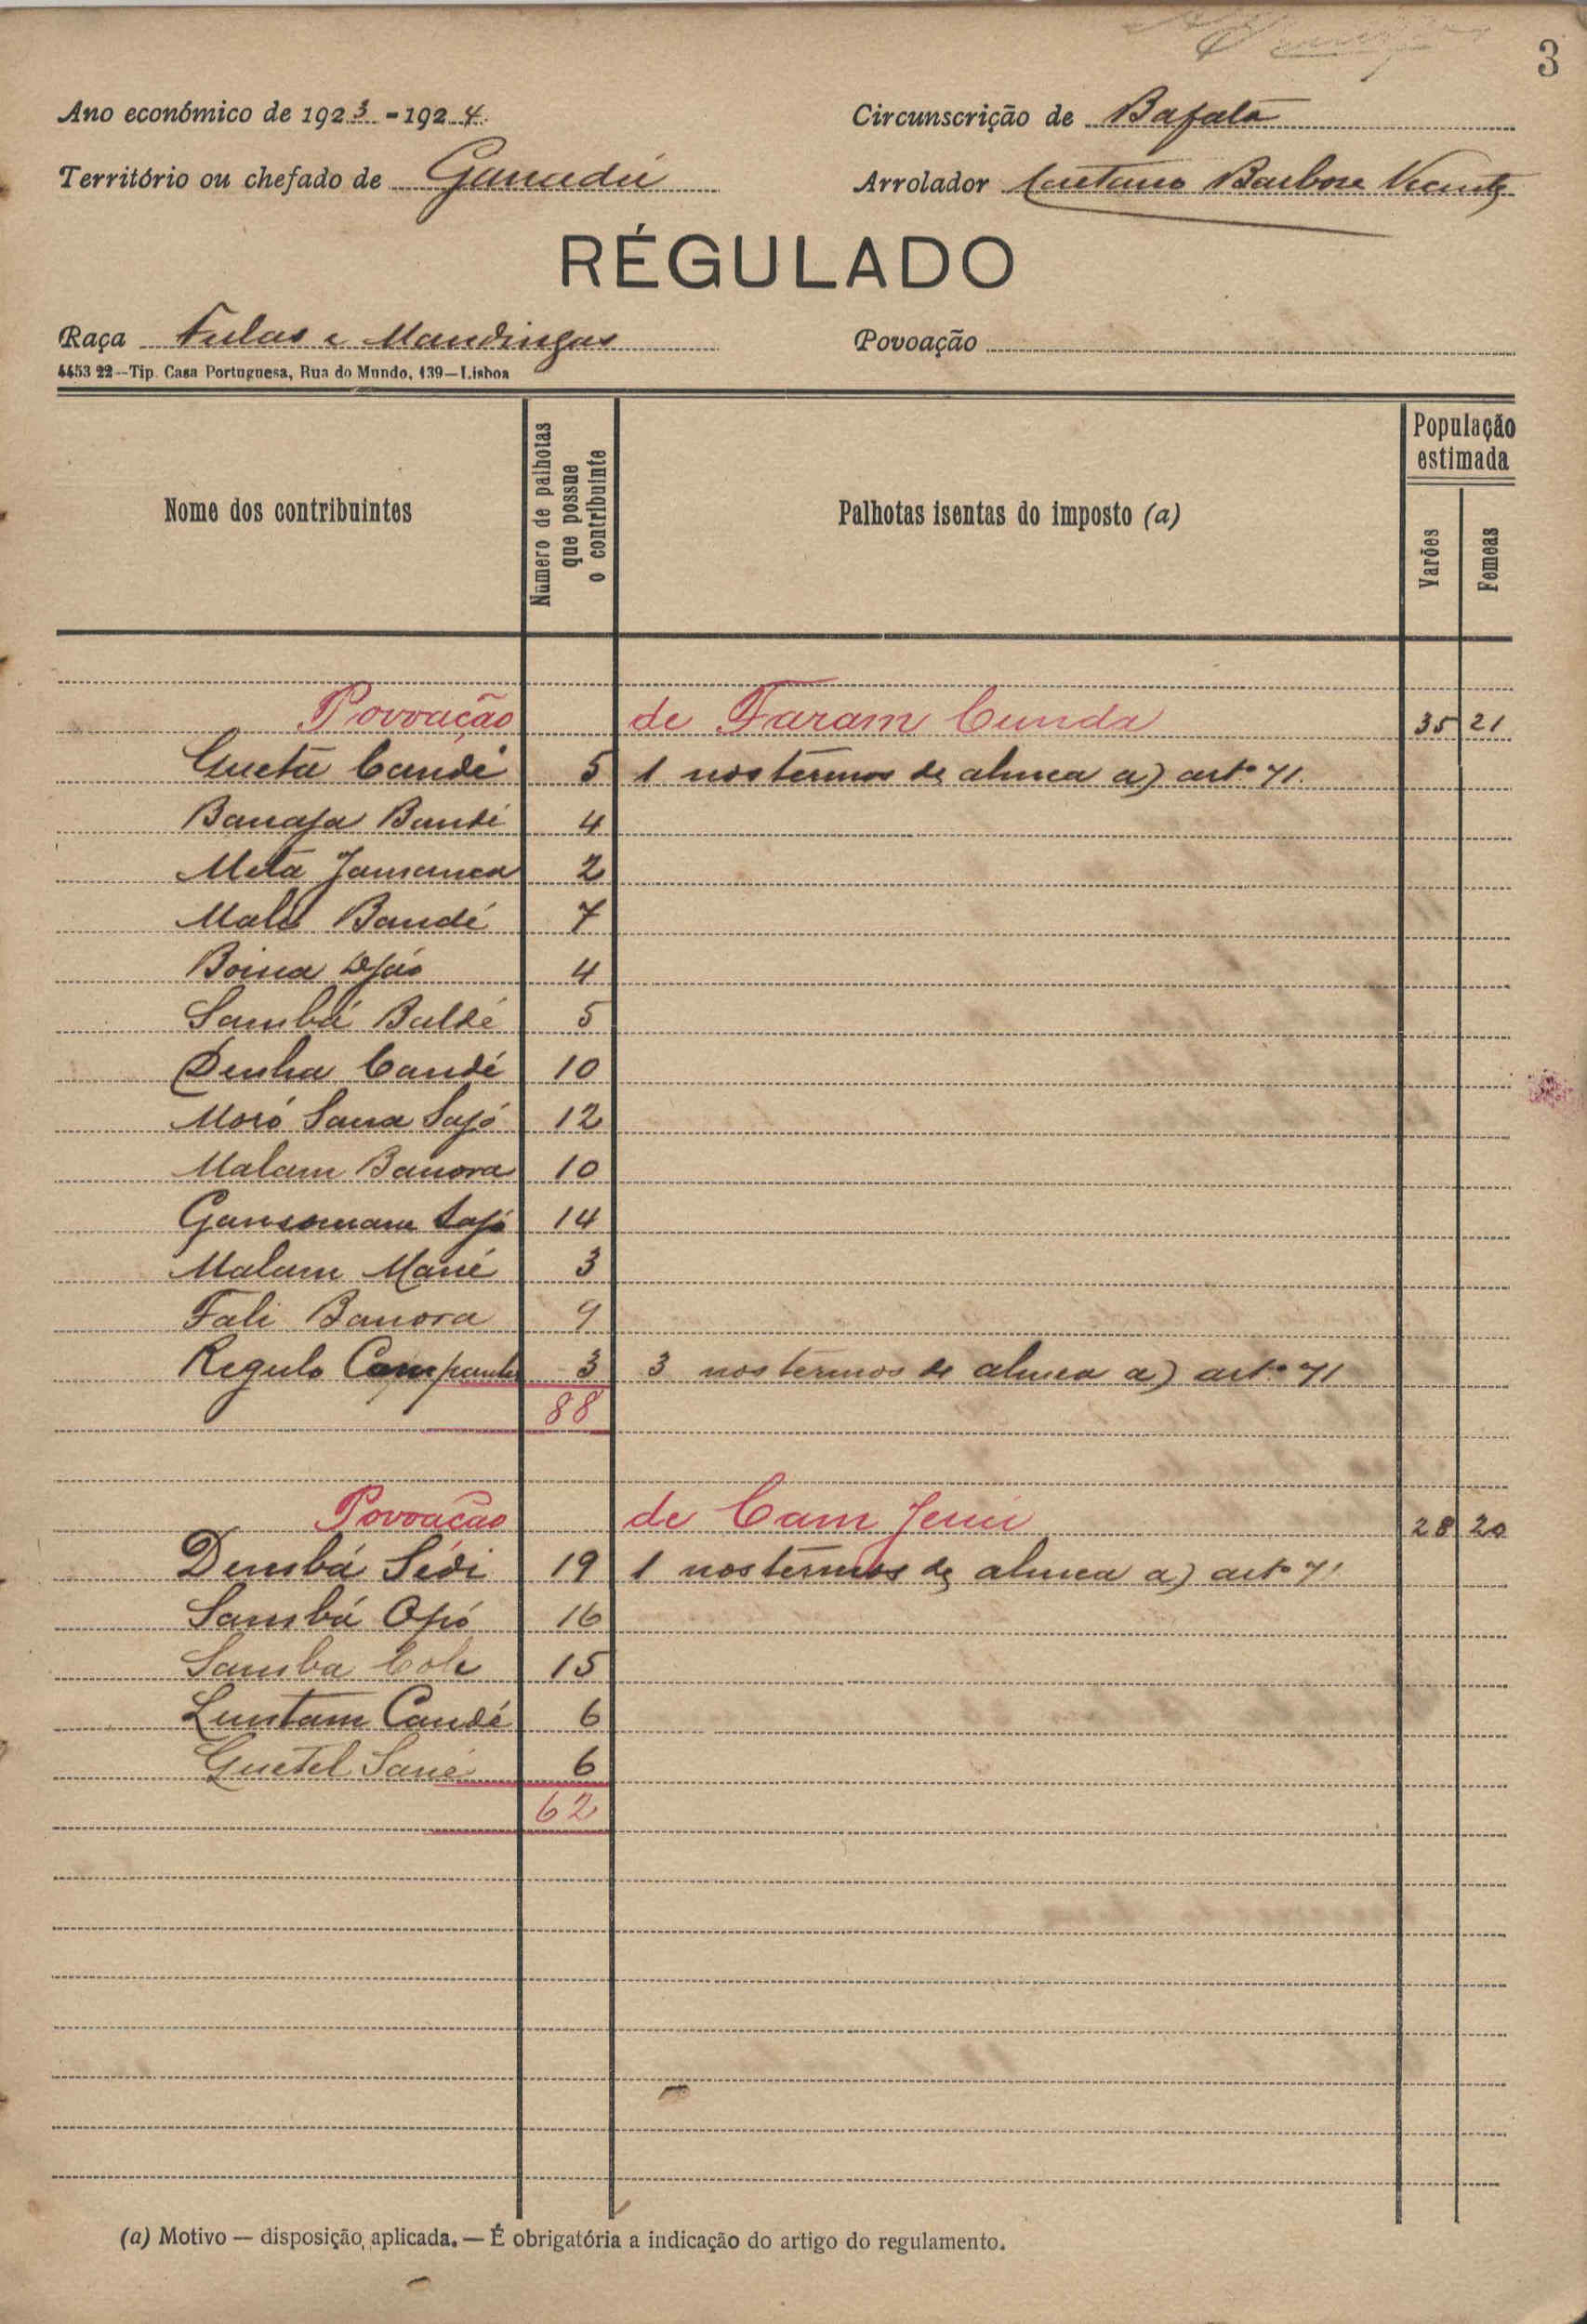 3
Ano económico de 1923-1924
Circunscrição de Bafatá
Território ou chefado de Ganadú
Arrolador Caetano Barbosa Vicente
RÉGULADO
Raça Fulas e Mandingas
Povoação
4453 22--Tip. Casa Portuguesa, Rua do Mundo, 139—Lisboa
Nome dos contribuintes
Número de palhotas que possue o contribuinte
Palhotas isentas do imposto (a)
População estimada
Varões
Femeas
Povoação de Faram Cunda 35 21
Guetá Candé 5 1 nos termos da alinea a) artº 71.
Banafa Bandé 4
Meta Jamanca 2
Male Bandé 7
Boina 4
Sambá Baldé 5
Denha Candé 10
Moró Sana Safó 12
Malam Banora 10
Gansomam Safó 14
Malam Mané 3
Fali Banora 9
Regulo 3 3 nos termos da alinea a) artº 71
88
Povoação de Cam Jeni 28 20
Dembá Sidi 19 1 nos termos da alinea a) artº 71
Sambá Opó 16
Samba Cole 15
Luntam Candé 6
Guetel Sané 6
62
(a) Motivo — disposição aplicada. — É obrigatória a indicação do artigo do regulamento.